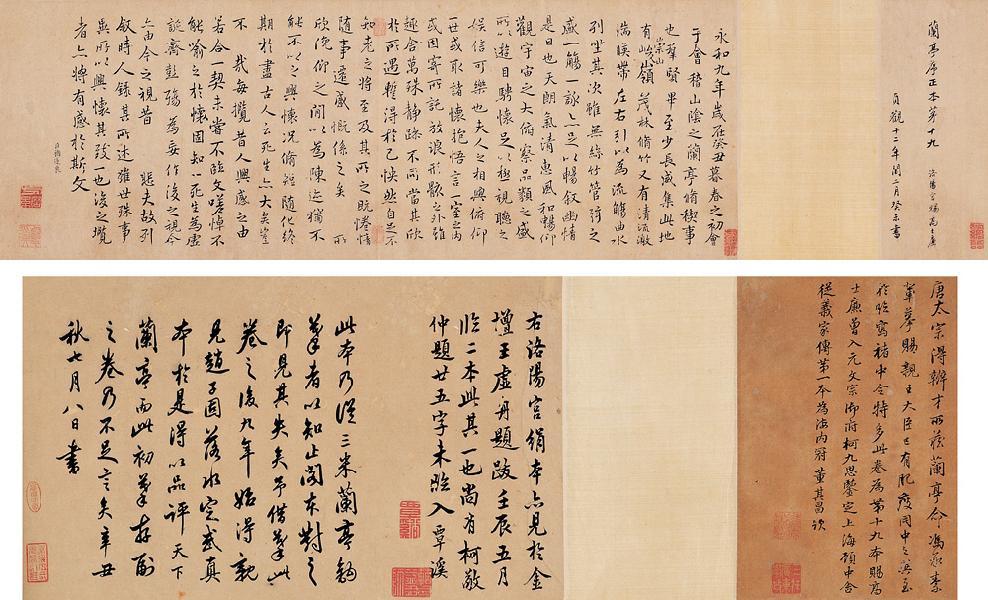 蘭亭序正本第十九
洛陽宮賜高士廉
貞觀十二年閏二月癸未書
永和九年歲在癸丑暮春之初會
于會稽山陰之蘭亭脩稧事
也羣賢畢至少長咸集此地
有崇山峻領茂林脩竹又有清流激
湍暎帶左右引以為流觴曲水
列坐其次雖無絲竹管弦之
盛一觴一詠亦足以暢叙幽情
是日也天朗氣清惠風和暢仰
觀宇宙之大俯察品類之盛
所以遊目騁懷足以極視聽之
娛信可樂也夫人之相與俯仰
一世或取諸懷抱悟言一室之內
或因寄所託放浪形骸之外雖
趣舍萬殊靜躁不同當其欣
於所遇暫得於己快然自足不
知老之將至及其所之既惓情
隨事遷感慨係之矣 所
欣俛仰之間以為陳迹猶不
能不以之興懷況脩短隨化終
期於盡古人云死生亦大矣豈
不 哉每攬昔人興感之由
若合一契未嘗不臨文嗟悼不
能喻之於懷固知一死生為虛
誕齊彭殤為妄作後之視今
亦由今之視昔 悲夫故列
叙時人錄其所述雖世殊事
異所以興懷其致一也後之攬
者亦將有感於斯文
臣褚遂良
唐太宗得辨才所藏蘭亭命馮承素
輩摹賜親王大臣已有肥瘦同中之異至
於臨寫褚中令特多此卷為第十九本賜高
士廉曾入元文宗御府柯九思鑒定上海顧中舍
從義家傳第一本為海內冠董其昌識
右洛陽宮絹本亦見於金
壇王虛舟題跋壬辰五月
臨二本此其一也尚有柯敬
仲題廿五字未臨入覃溪
此本乃從三米蘭亭鉤
摹者以知止閣本對之
即見其失矣予借摹此
卷之後九年始得親
見趙子固落水定武真
本於是得以品評天下
蘭亭而此初摹存副
之卷乃不足言矣辛丑
秋七月八日書